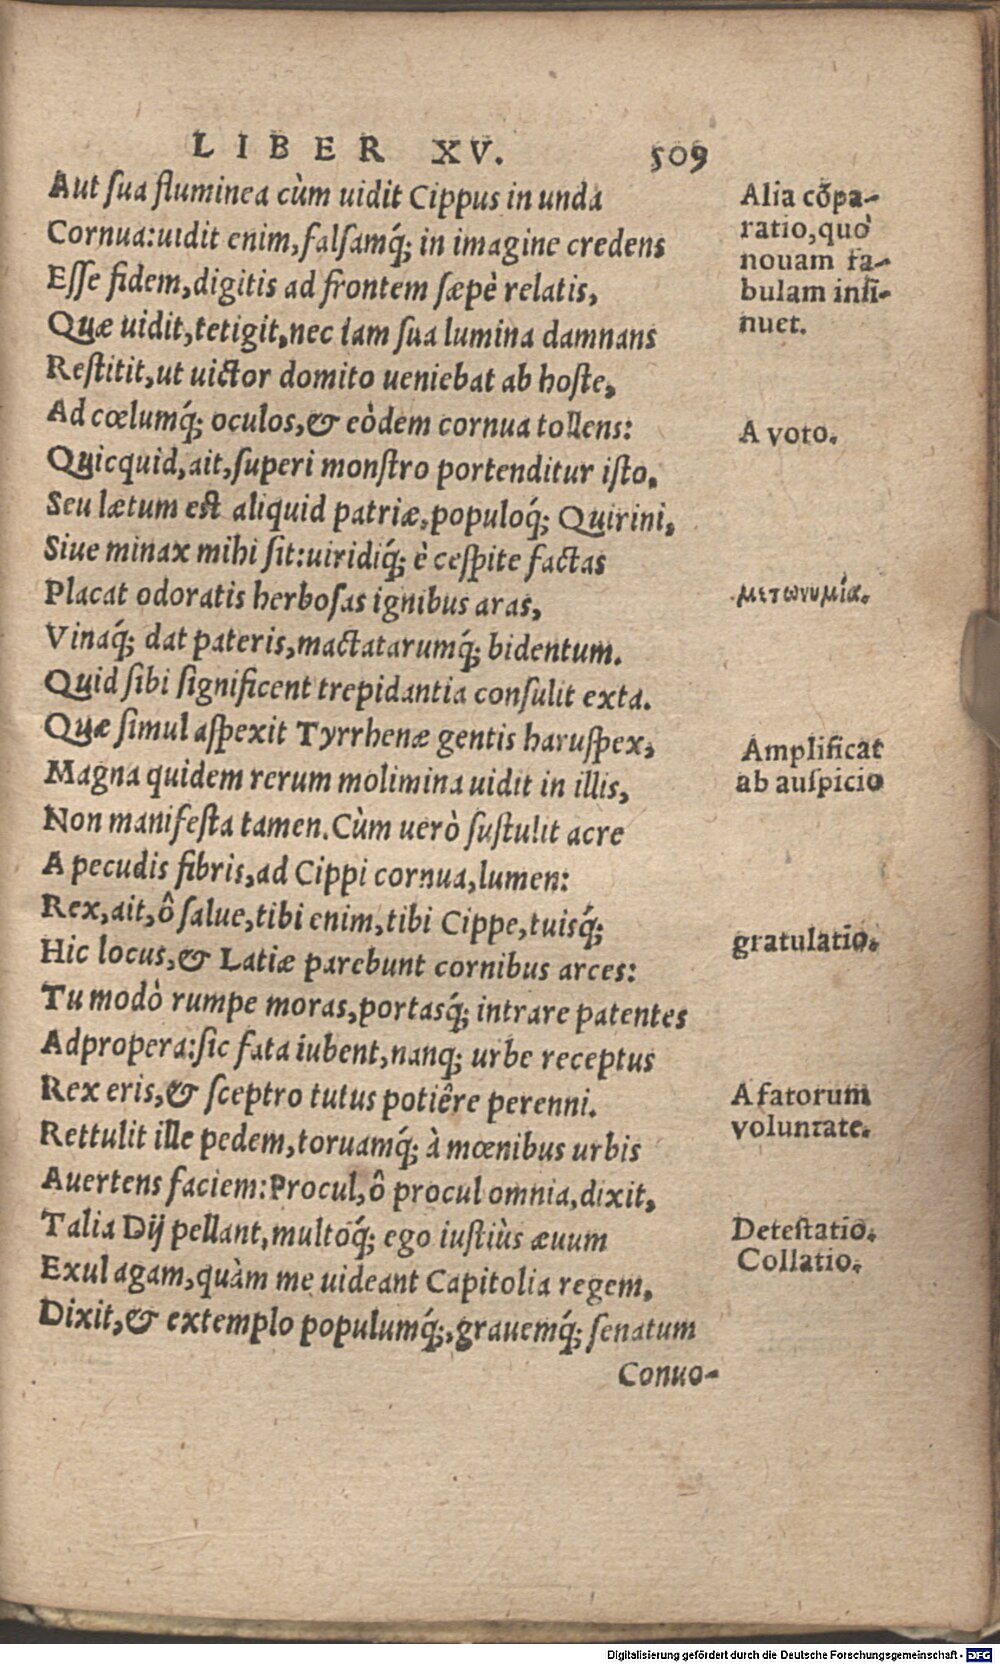 LIBER XV. 509
Aut ſua fluminea cùm uidit Cippus in unda
Cornua:uidit enim,falſamq́; in imagine credens
Eſſe fidem,digitis ad frontem ſæpè relatis,
Quæ uidit,tetigit,nec iam ſua lumina damnans
Reſtitit,ut uictor domito ueniebat ab hoſte,
Ad cœlumq́; oculos,& eòdem cornua tollens:
Quicquid,ait,ſuperi monſtro portenditur iſto,
Seu lætum est aliquid patriæ,populoq́; Quirini,
Siue minax mihi ſit:uiridiq́; è ceſpite factas
Placat odoratis herboſas ignibus aras,
Vinaq́; dat pateris,mactatarumq́; bidentum.
Quid ſibi ſignificent trepidantia conſulit exta.
Quæ ſimul aſpexit Tyrrhenæ gentis haruſpex,
Magna quidem rerum molimina uidit in illis,
Non manifeſta tamen.Cùm uerò ſuſtulit acre
A pecudis fibris,ad Cippi cornua,lumen:
Rex,ait,ô ſalue,tibi enim,tibi Cippe,tuisq́;
Hic locus,& Latiæ parebunt cornibus arces:
Tu modò rumpe moras,portasq́; intrare patentes
Adpropera:ſic fata iubent,nanq; urbe receptus
Rex eris,& ſceptro tutus potiêre perenni.
Rettulit ille pedem,toruamq́; à mœnibus urbis
Auertens faciem:Procul,ô procul omnia,dixit,
Talia Dij pellant,multoq́; ego iuſtiùs æuum
Exul agam,quàm me uideant Capitolia regem,
Dixit,& extemplo populumq́;,grauemq́; ſenatum
Conuo-
Alia cōpa-
ratio,quo
nouam fa-
bulam inſi-
nuet.
A voto.
μετωνυμία.
Amplificat
ab auſpicio
gratulatio.
A fatorum
voluntate.
Deteſtatio.
Collatio.
Digitalisierung gefördert durch die Deutsche Forschungsgemeinschaft - DFG